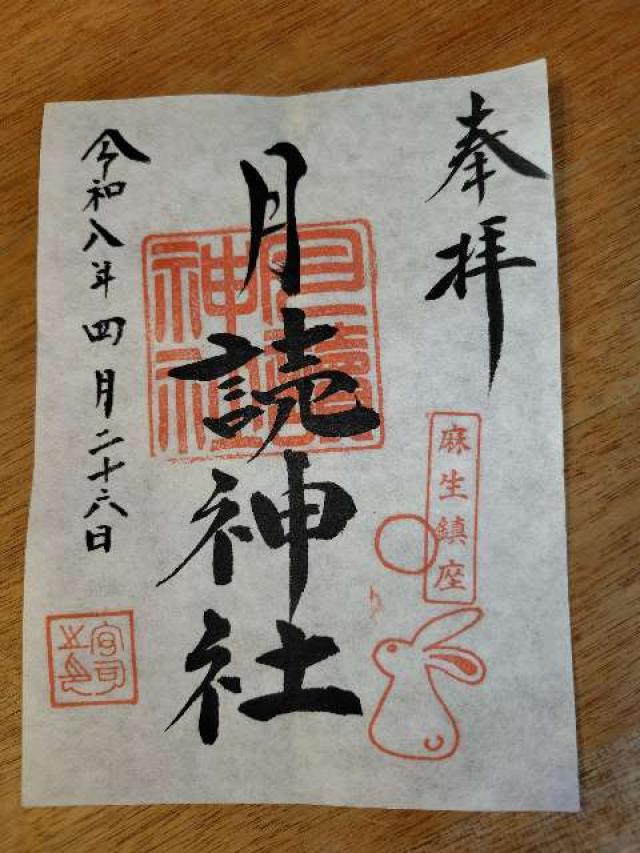 奉拝
麻生鎮座
月読神社
月讀神社
令和八年四月二十六日
宮司之印